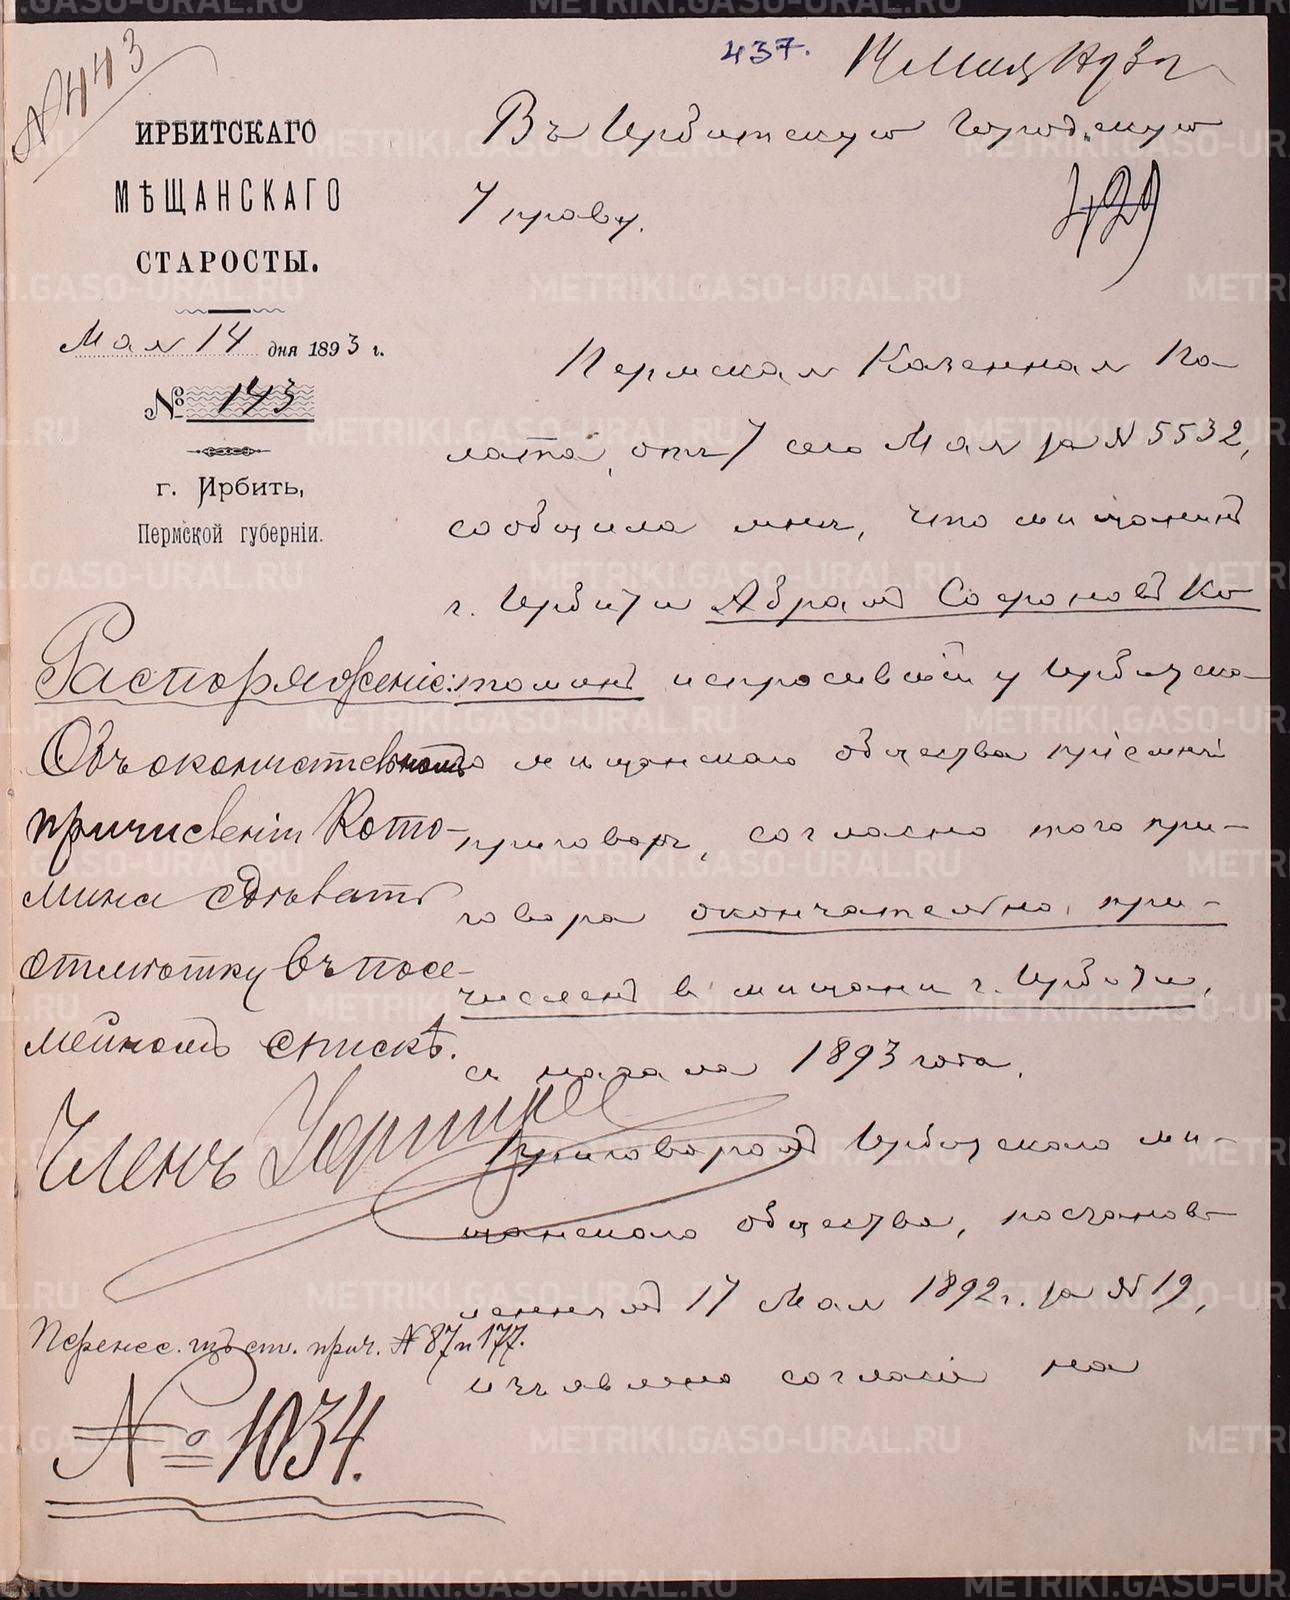 № 443
437.
429
ИРБИТСКАГО
МѢЩАНСКАГО
СТАРОСТЫ.
Мая 14 дня 1893 г.
№ 143
г. Ирбить,
Пермской губерніи.
Въ Ирбитскую Городскую
Управу.
Пермская Казенная Па-
лата, отъ 7 сего Мая за № 5532,
сообщила мнѣ, что мѣщанинъ
г. Ирбити Абрамъ Софоновъ Ко-
томинъ испросившій у Ирбитска-
го мѣщанскаго общества пріемный
приговоръ, согласно того при-
говора окончательно при-
численъ въ мѣщане г. Ирбити,
съ начала 1893 года.
Приговоромъ Ирбитскаго мѣ-
щанскаго общества, постанов-
леннымъ 17 Мая 1892 г. за № 19,
изъявлено согласіе на
Распоряженіе:
Объ окончательномъ
причисленіи Кото-
мина сдѣлать
отмѣтку въ посе-
мейномъ спискѣ.
Членъ
Перенес. изъ ст. прич. № 87 и 177.
№ 1034.
METRIKI.GASO-URAL.RU